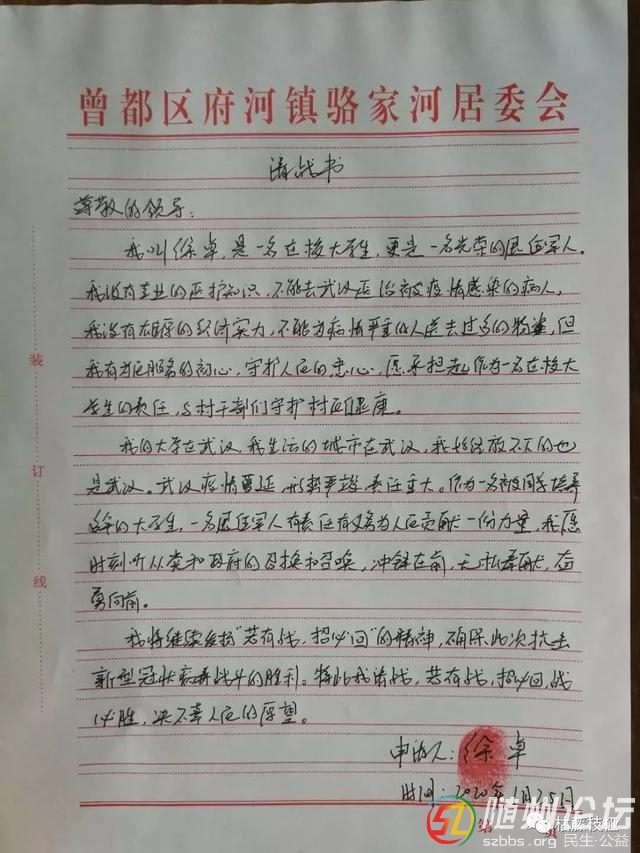 曾都区府河镇骆家河居委会
请战书
尊敬的领导：
我叫徐卓，是一名在校大学生，更是一名光荣的退伍军人。
我没有专业的医护知识，不能去武汉医治被疫情感染的病人，
我没有雄厚的经济实力，不能为病情严重的人送去过多的物资，但
我有为民服务的初心，守护人民的忠心，愿承担起作为一名在校大
学生的责任，与村干部们守护村民健康。
我的大学在武汉，我生活的城市在武汉，我始终放不下的也
是武汉。武汉疫情蔓延，形势严峻，责任重大。作为一名被国家培养
多年的大学生，一名退伍军人有责任有义务为人民贡献一份力量，我愿
时刻听从党和政府的召换和召唤，冲锋在前，无私奉献，奋
勇向前。
我将继续发扬“若有战，招必回”的精神，确保此次抗击
新型冠状病毒战斗的胜利。特此我请战，若有战，招必回，战
必胜，决不辜人民的厚望。
申请人：徐卓
时间：2020年1月25日
装
订
线
随州论坛
szbbs.org 民生·公益
枯藤枝桠